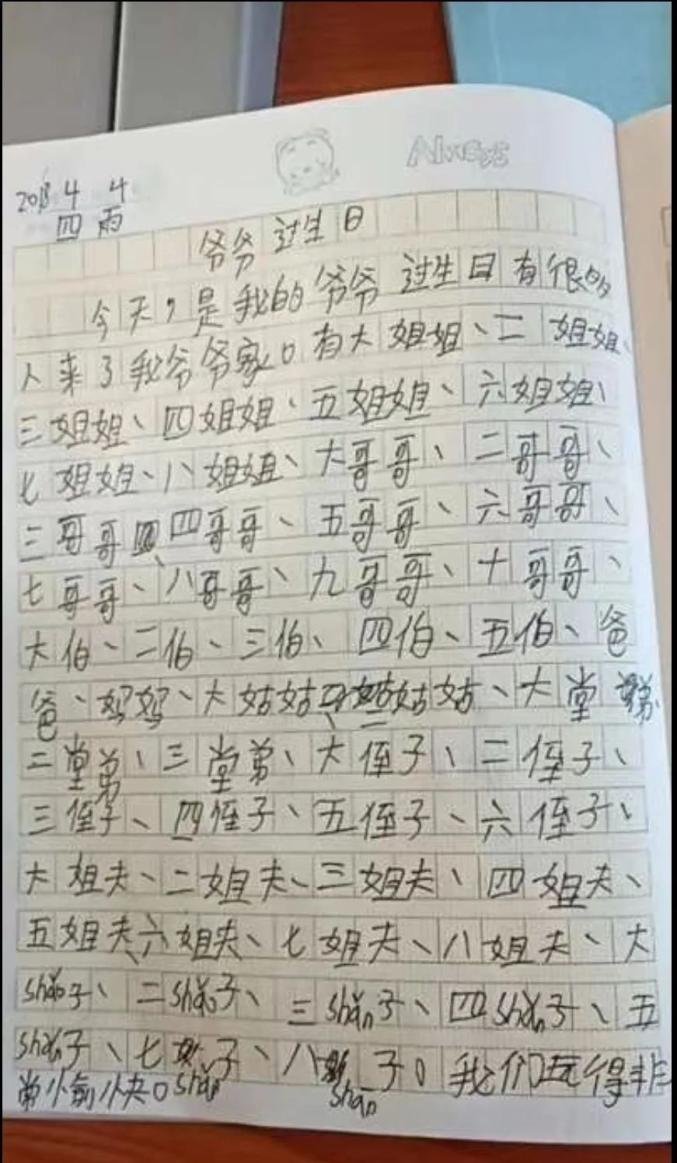 Always
2018 4 4
四 雨
爷爷过生日
今天,是我的爷爷过生日有很多
人来了我爷爷家。有大姐姐、二姐姐、
三姐姐、四姐姐、五姐姐、六姐姐、
七姐姐、八姐姐、大哥哥、二哥哥、
三哥哥四哥哥、五哥哥、六哥哥、
七哥哥、八哥哥、九哥哥、十哥哥、
大伯、二伯、三伯、四伯、五伯、爸
爸、妈妈、大姑姑、二姑姑、大堂弟、
二堂弟、三堂弟、大侄子、二侄子、
三侄子、四侄子、五侄子、六侄子、
大姐夫、二姐夫、三姐夫、四姐夫、
五姐夫、六姐夫、七姐夫、八姐夫、大
子、二子、三shǎn子、四shǎn子、五
shǎn子、七shǎn子、八shǎn子。我们玩得非
常愉快。